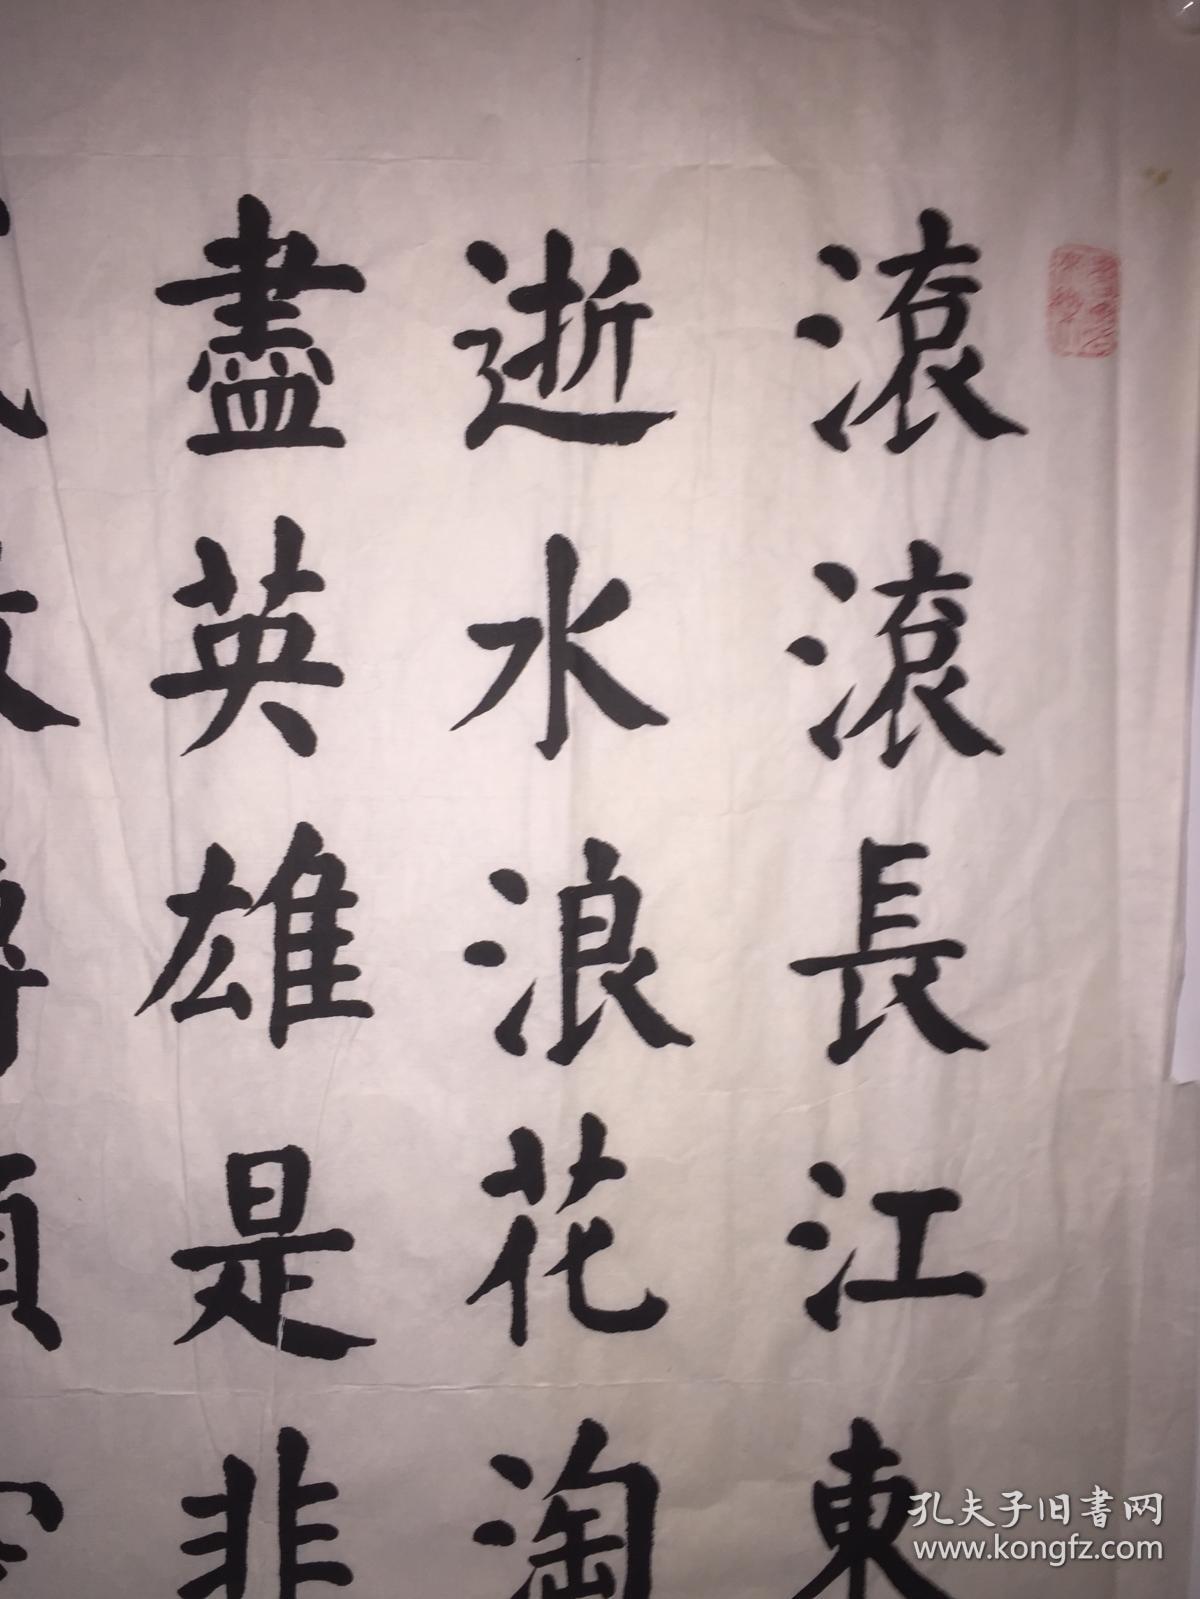 滚滚長江東
逝水浪花淘
盡英雄是非
孔夫子旧書网
www.kongfz.com